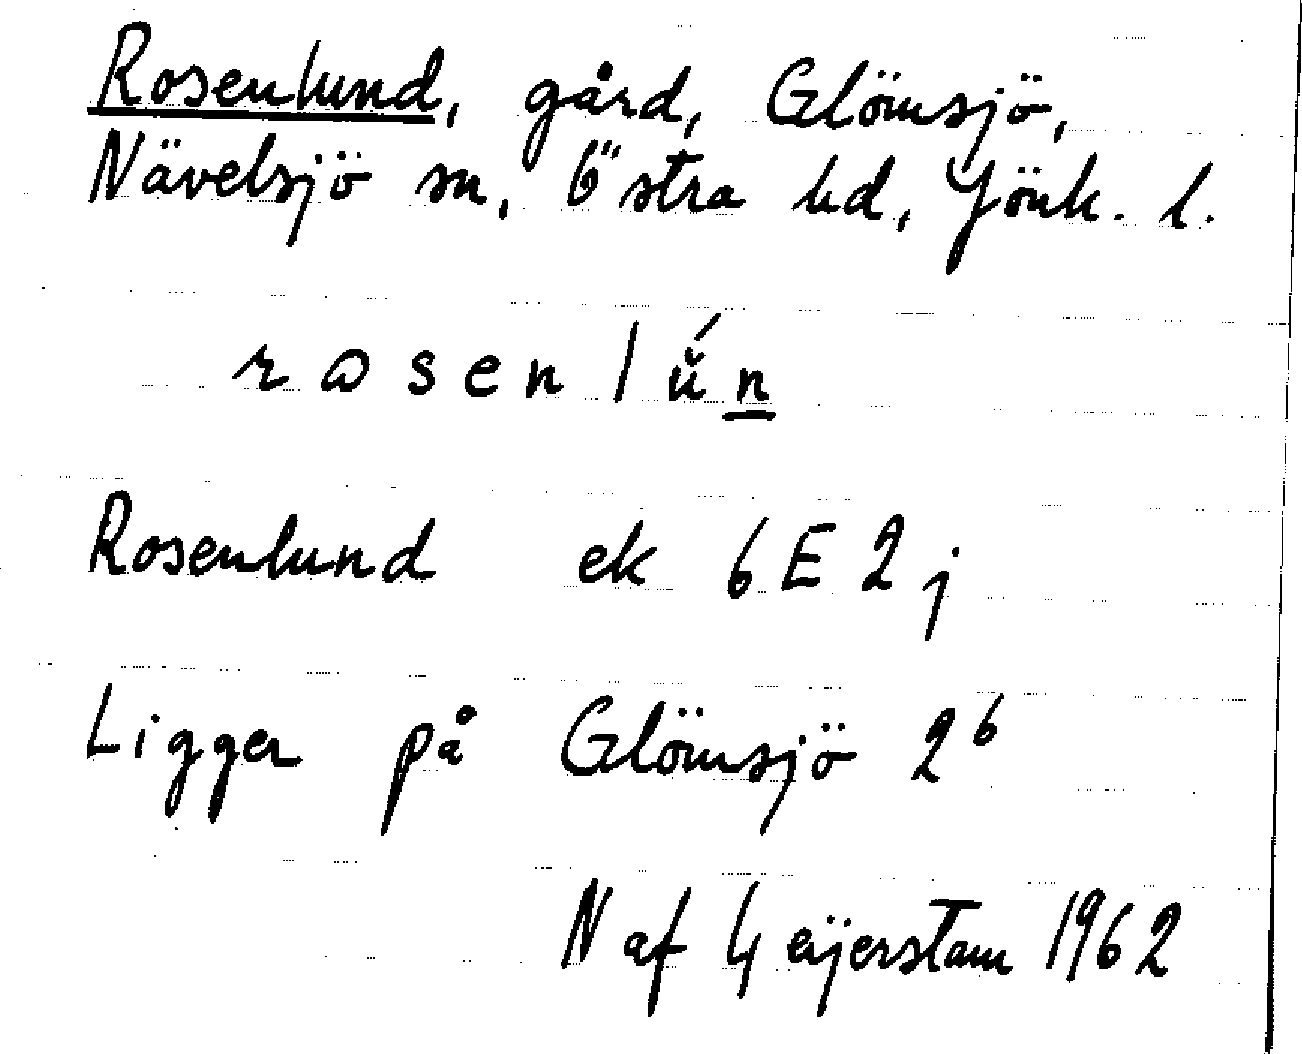 Rosenlund, gård, Glömsjö,
Nävelsjö sn, Östra hd, Jönk. l.
rosenlŭ́n
Rosenlund ek 6E2j
Ligger på Glömsjö 2⁶
N af Geijerstam 1962